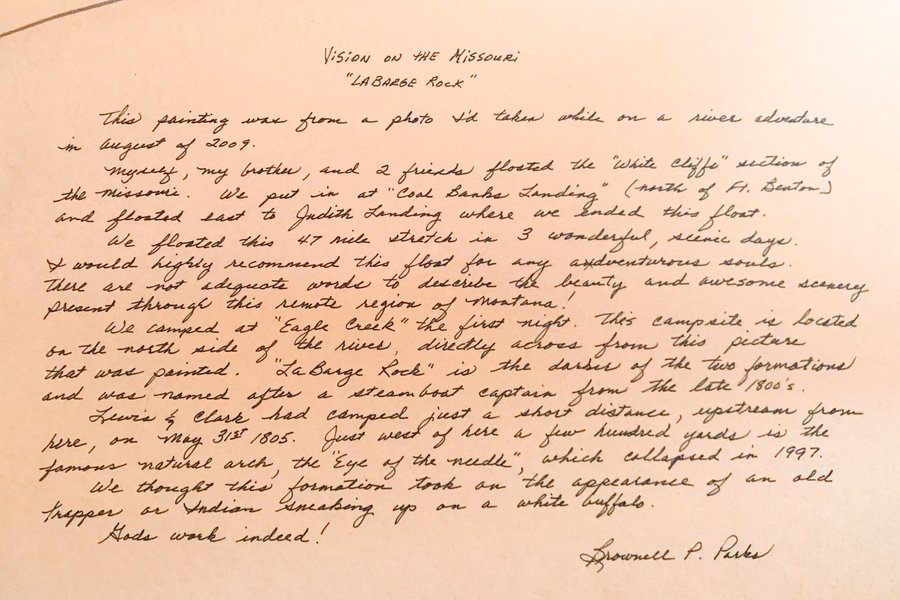 Vision on the Missouri
"LaBarge Rock"
This painting was from a photo I'd taken while on a river adventure
in august of 2009.
Myself, my brother, and 2 friends floated the "White Cliffs" section of
the Missouri. We put in at "Coal Banks Landing" (north of Ft. Benton)
and floated east to Judith Landing where we ended this float.
We floated this 47 mile stretch in 3 wonderful, scenic days.
I would highly recommend this float for any adventurous souls.
There are not adequate words to describe the beauty and awesome scenery
present through this remote region of Montana!
We camped at "Eagle Creek" the first night. This campsite is located
on the north side of the river, directly across from this picture
that was painted. "LaBarge Rock" is the darker of the two formations
and was named after a steamboat captain from the late 1800's.
Lewis & Clark had camped just a short distance, upstream from
here, on May 31st 1805. Just west of here a few hundred yards is the
famous natural arch, the "Eye of the needle", which collapsed in 1997.
We thought this formation took on the appearance of an old
trapper or Indian sneaking up on a white buffalo.
Gods work indeed!
Brownell P. Parks